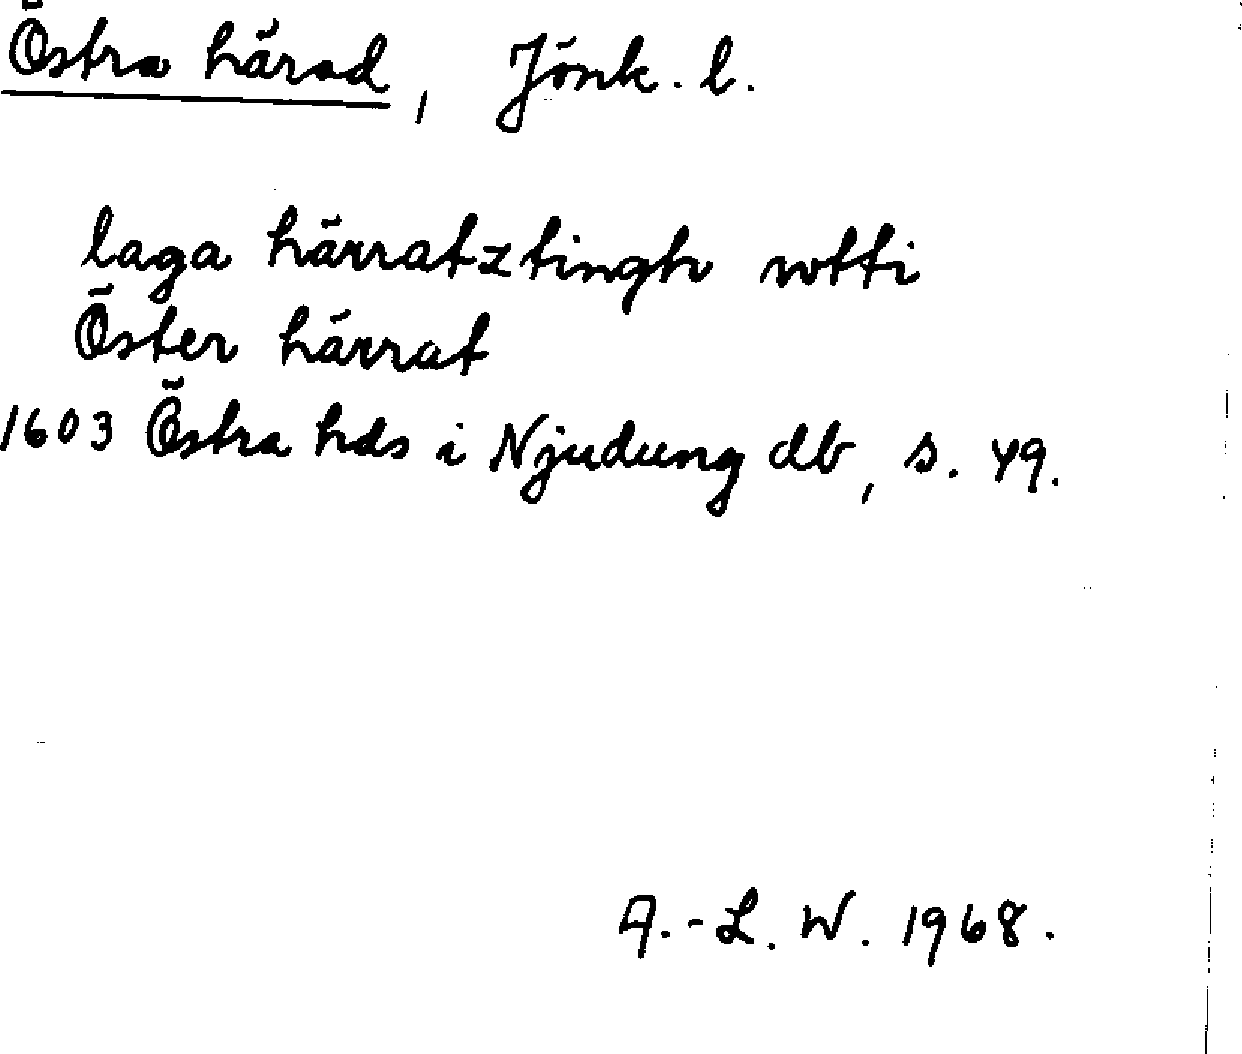 Östra härad, Jönk. l.
laga härratztingh wtti
Öster härrat
1603 Östra hds i Njudung db, s. 49.
A.-L. W. 1968.